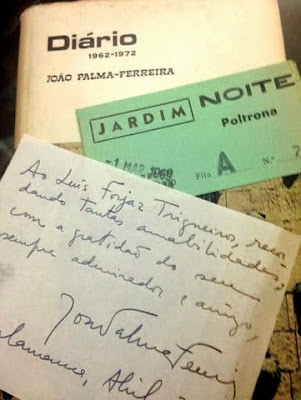 Diário
1962-1972
JOÃO PALMA-FERREIRA
JARDIM NOITE
Poltrona
-1 MAR 1969
Fila A N.º 2
Ao Luís Forjaz Trigueiros, recor
dando tantas amabilidades,
com a gratidão do seu
sempre admirador e amigo,
João Palma Ferreira
Salamanca, Abril